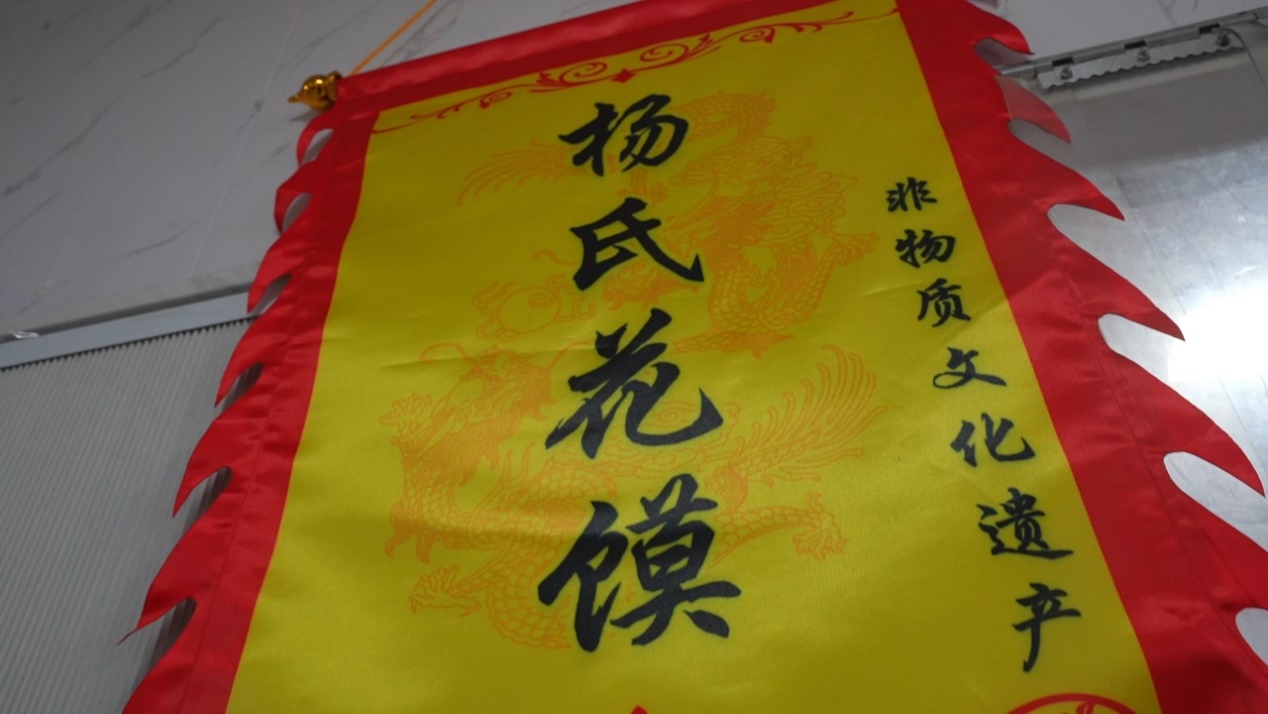 非物质文化遗产
杨氏花馍